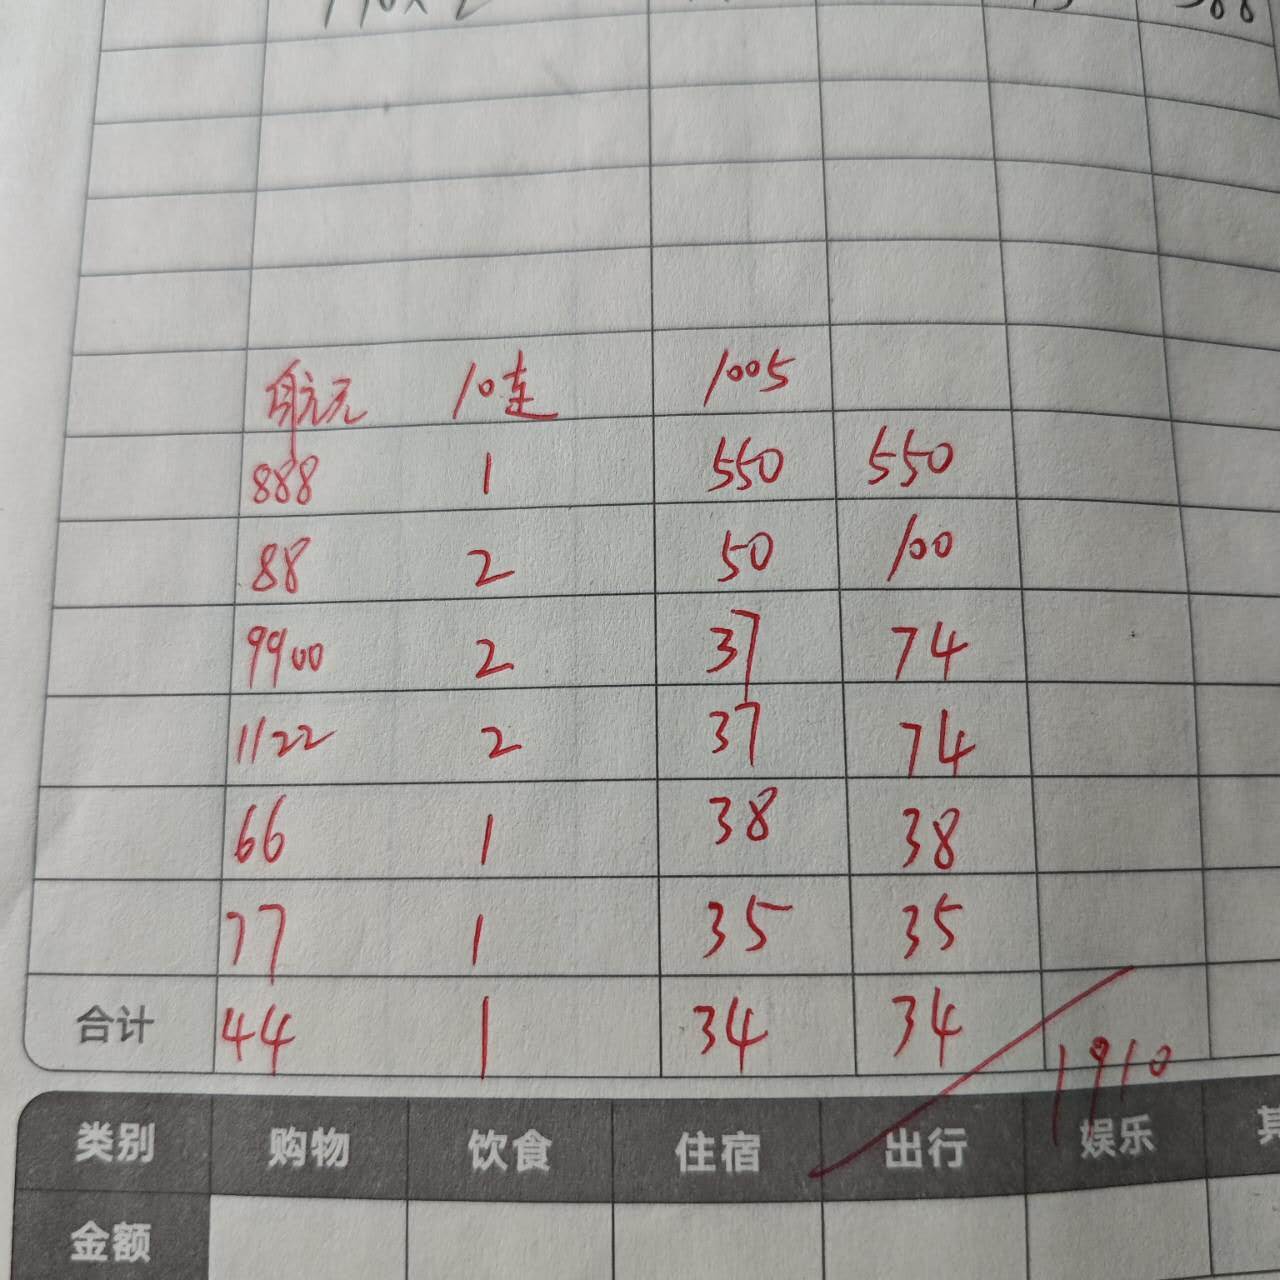 航元 10连 1005
888 1 550 550
88 2 50 100
9900 2 37 74
1122 2 37 74
66 1 38 38
77 1 35 35
合计 44 1 34 34
1910
类别 购物 饮食 住宿 出行 娱乐
金额